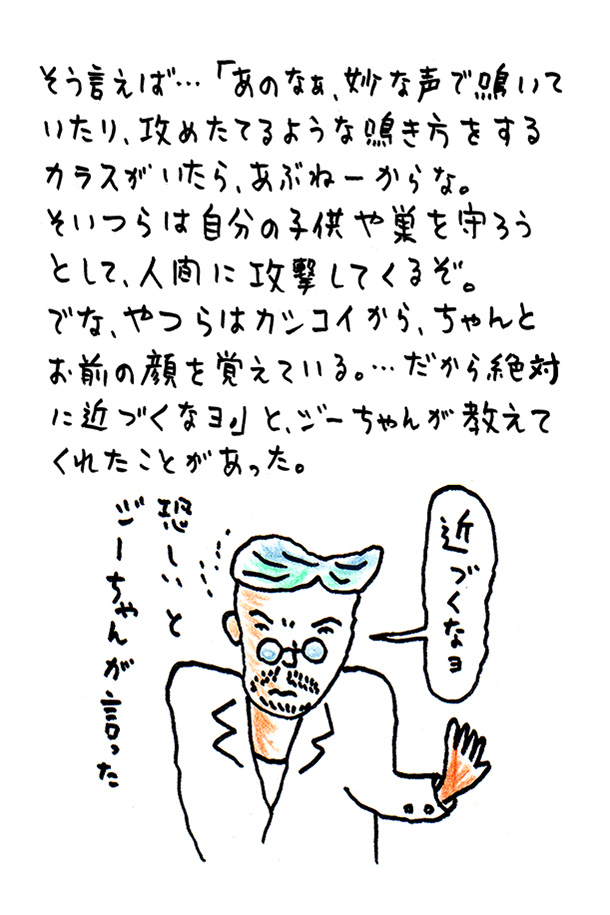 そう言えば…「あのなぁ、妙な声で鳴いて
いたり、攻めたてるような鳴き方をする
カラスがいたら、あぶねーからな。
そいつらは自分の子供や巣を守ろう
として、人間に攻撃してくるぞ。
でな、やつらはカシコイから、ちゃんと
お前の顔を覚えている。…だから絶対
に近づくなヨ。」と、ジーちゃんが教えて
くれたことがあった。
近づくなヨ
恐しいと
ジーちゃんが言った